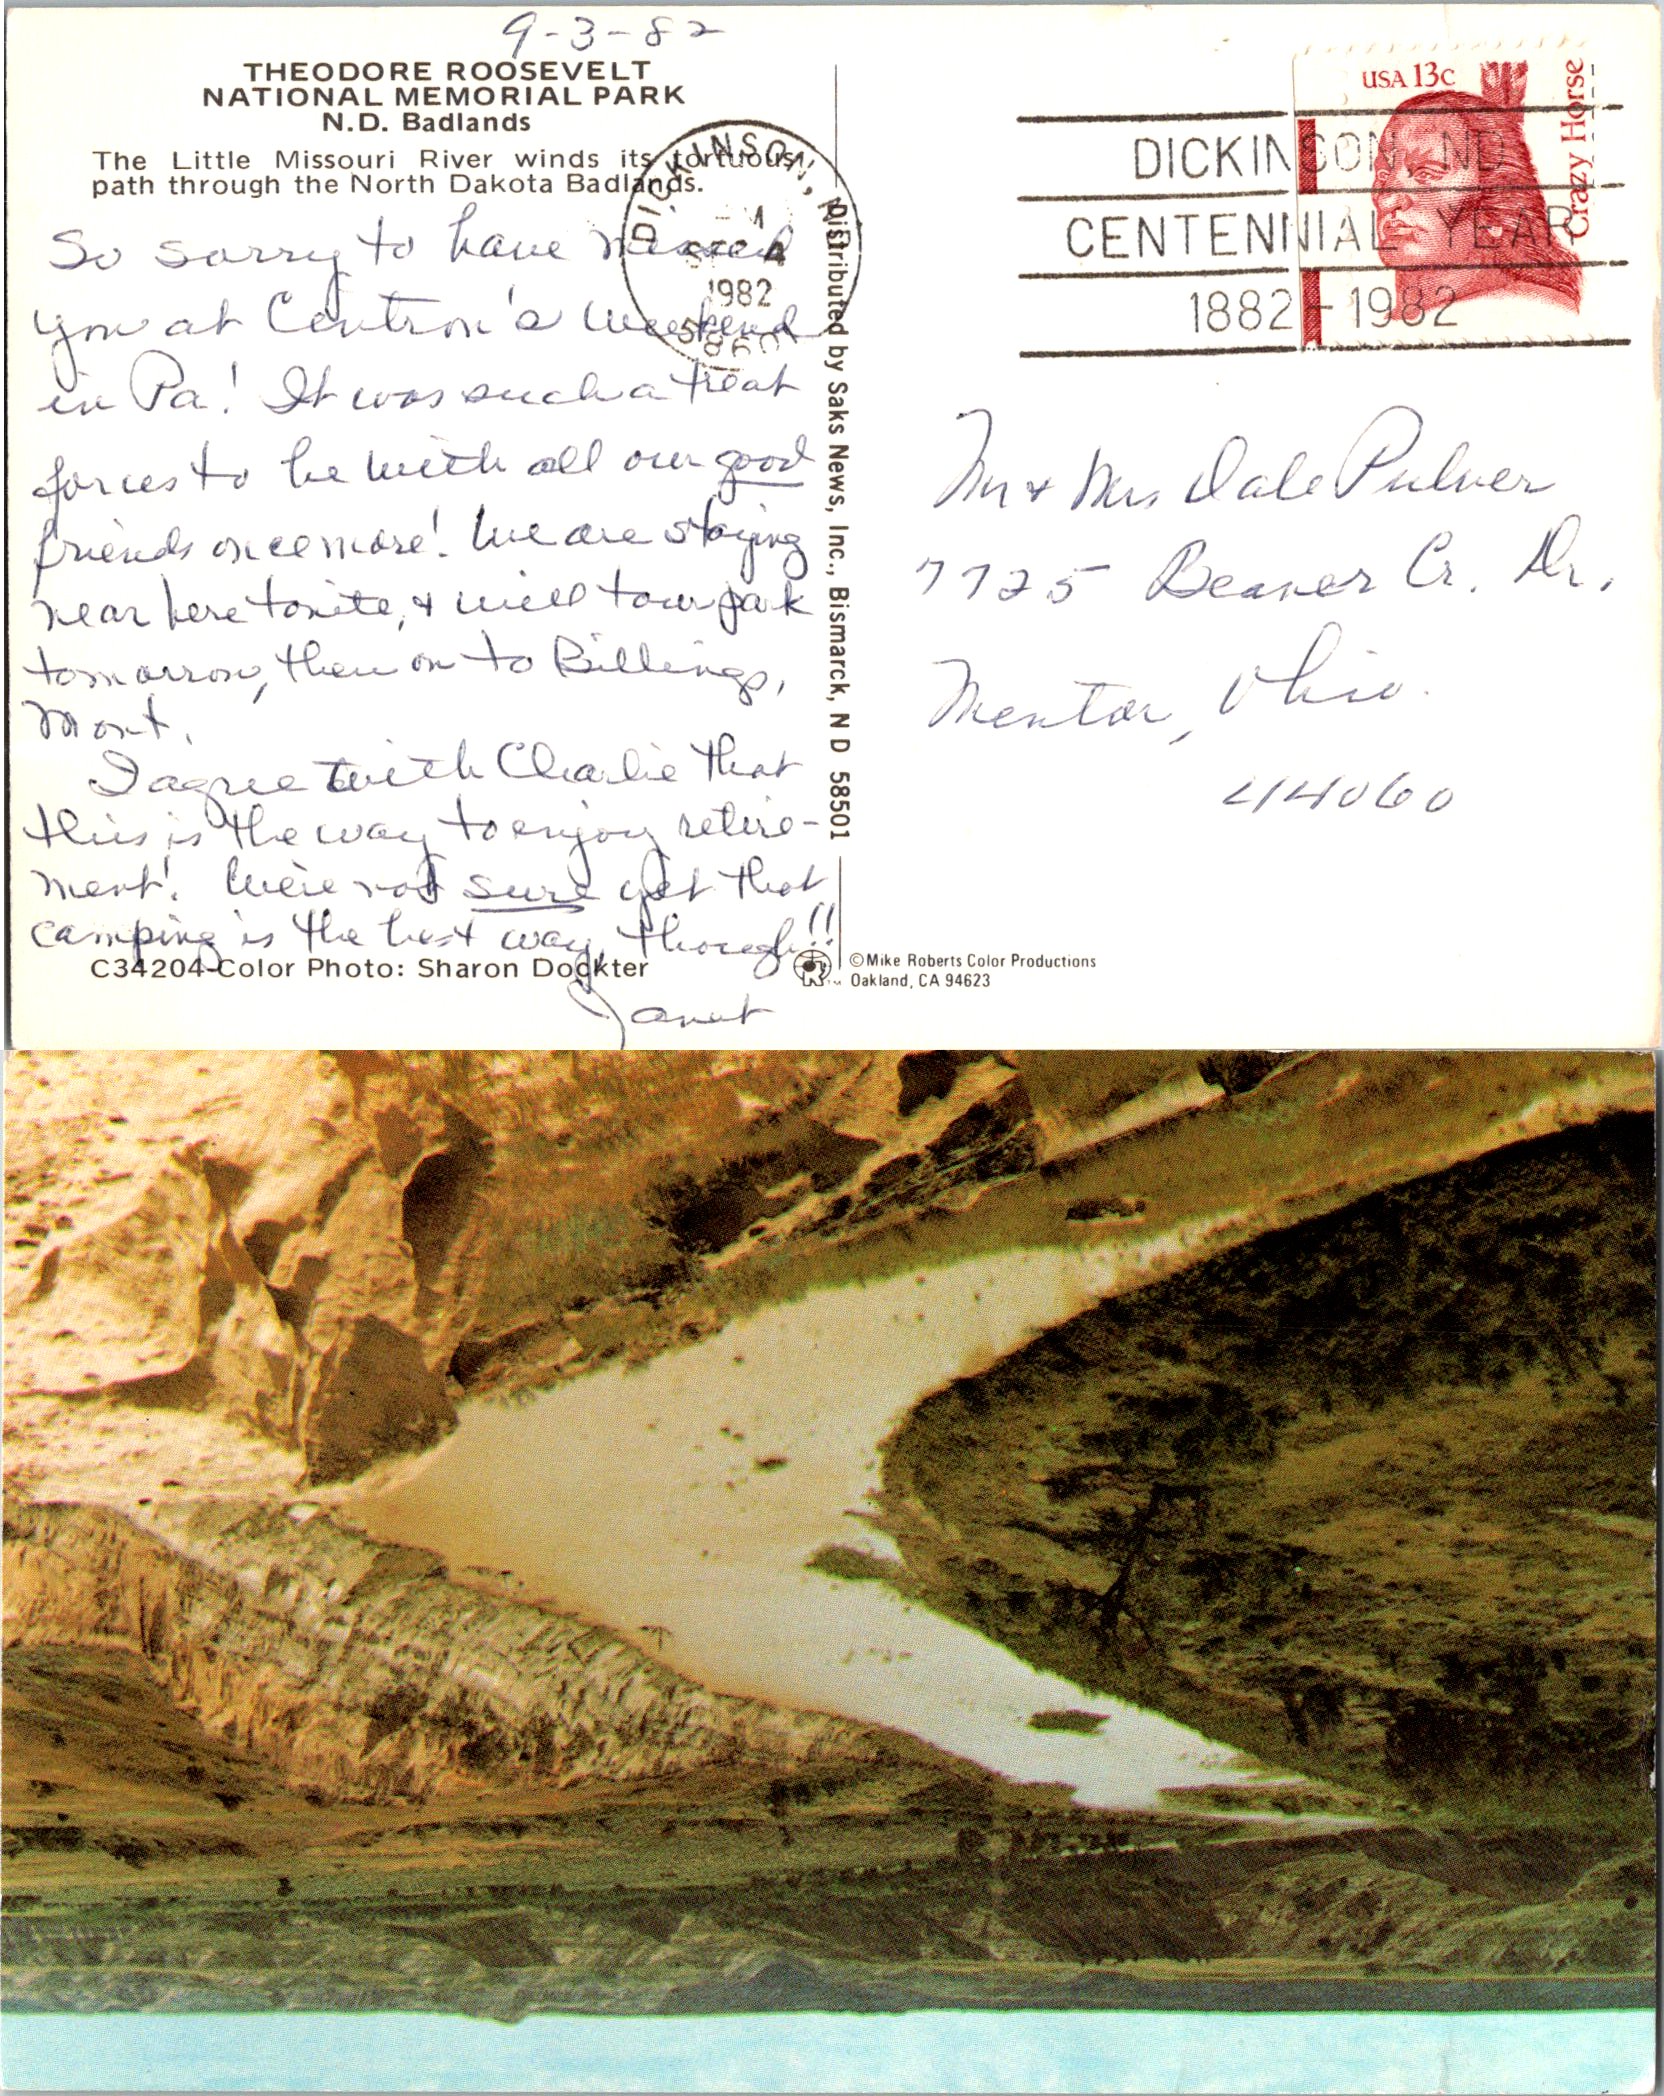 9-3-82
THEODORE ROOSEVELT
NATIONAL MEMORIAL PARK
N.D. Badlands
The Little Missouri River winds its tortuous
path through the North Dakota Badlands.
So sorry to have missed
you at Centron's weekend
in Pa! It was such a treat
for us to be with all our good
friends once more! We are staying
near here tonite, & will tour park
tomorrow, then on to Billings,
Mont.
I agree with Charlie that
this is the way to enjoy retire-
ment! We're not sure yet that
camping is the best way, though!!
Janet
C34204-Color Photo: Sharon Dockter
DICKINSON, N
SEP 4
1982
58601
Distributed by Saks News, Inc., Bismarck, N D 58501
©Mike Roberts Color Productions
Oakland, CA 94623
USA 13c
Crazy Horse
DICKINSON ND
CENTENNIAL YEAR
1882-1982
Mr & Mrs Dale Pulver
7725 Beaver Cr. Dr.
Mentor, Ohio.
44060